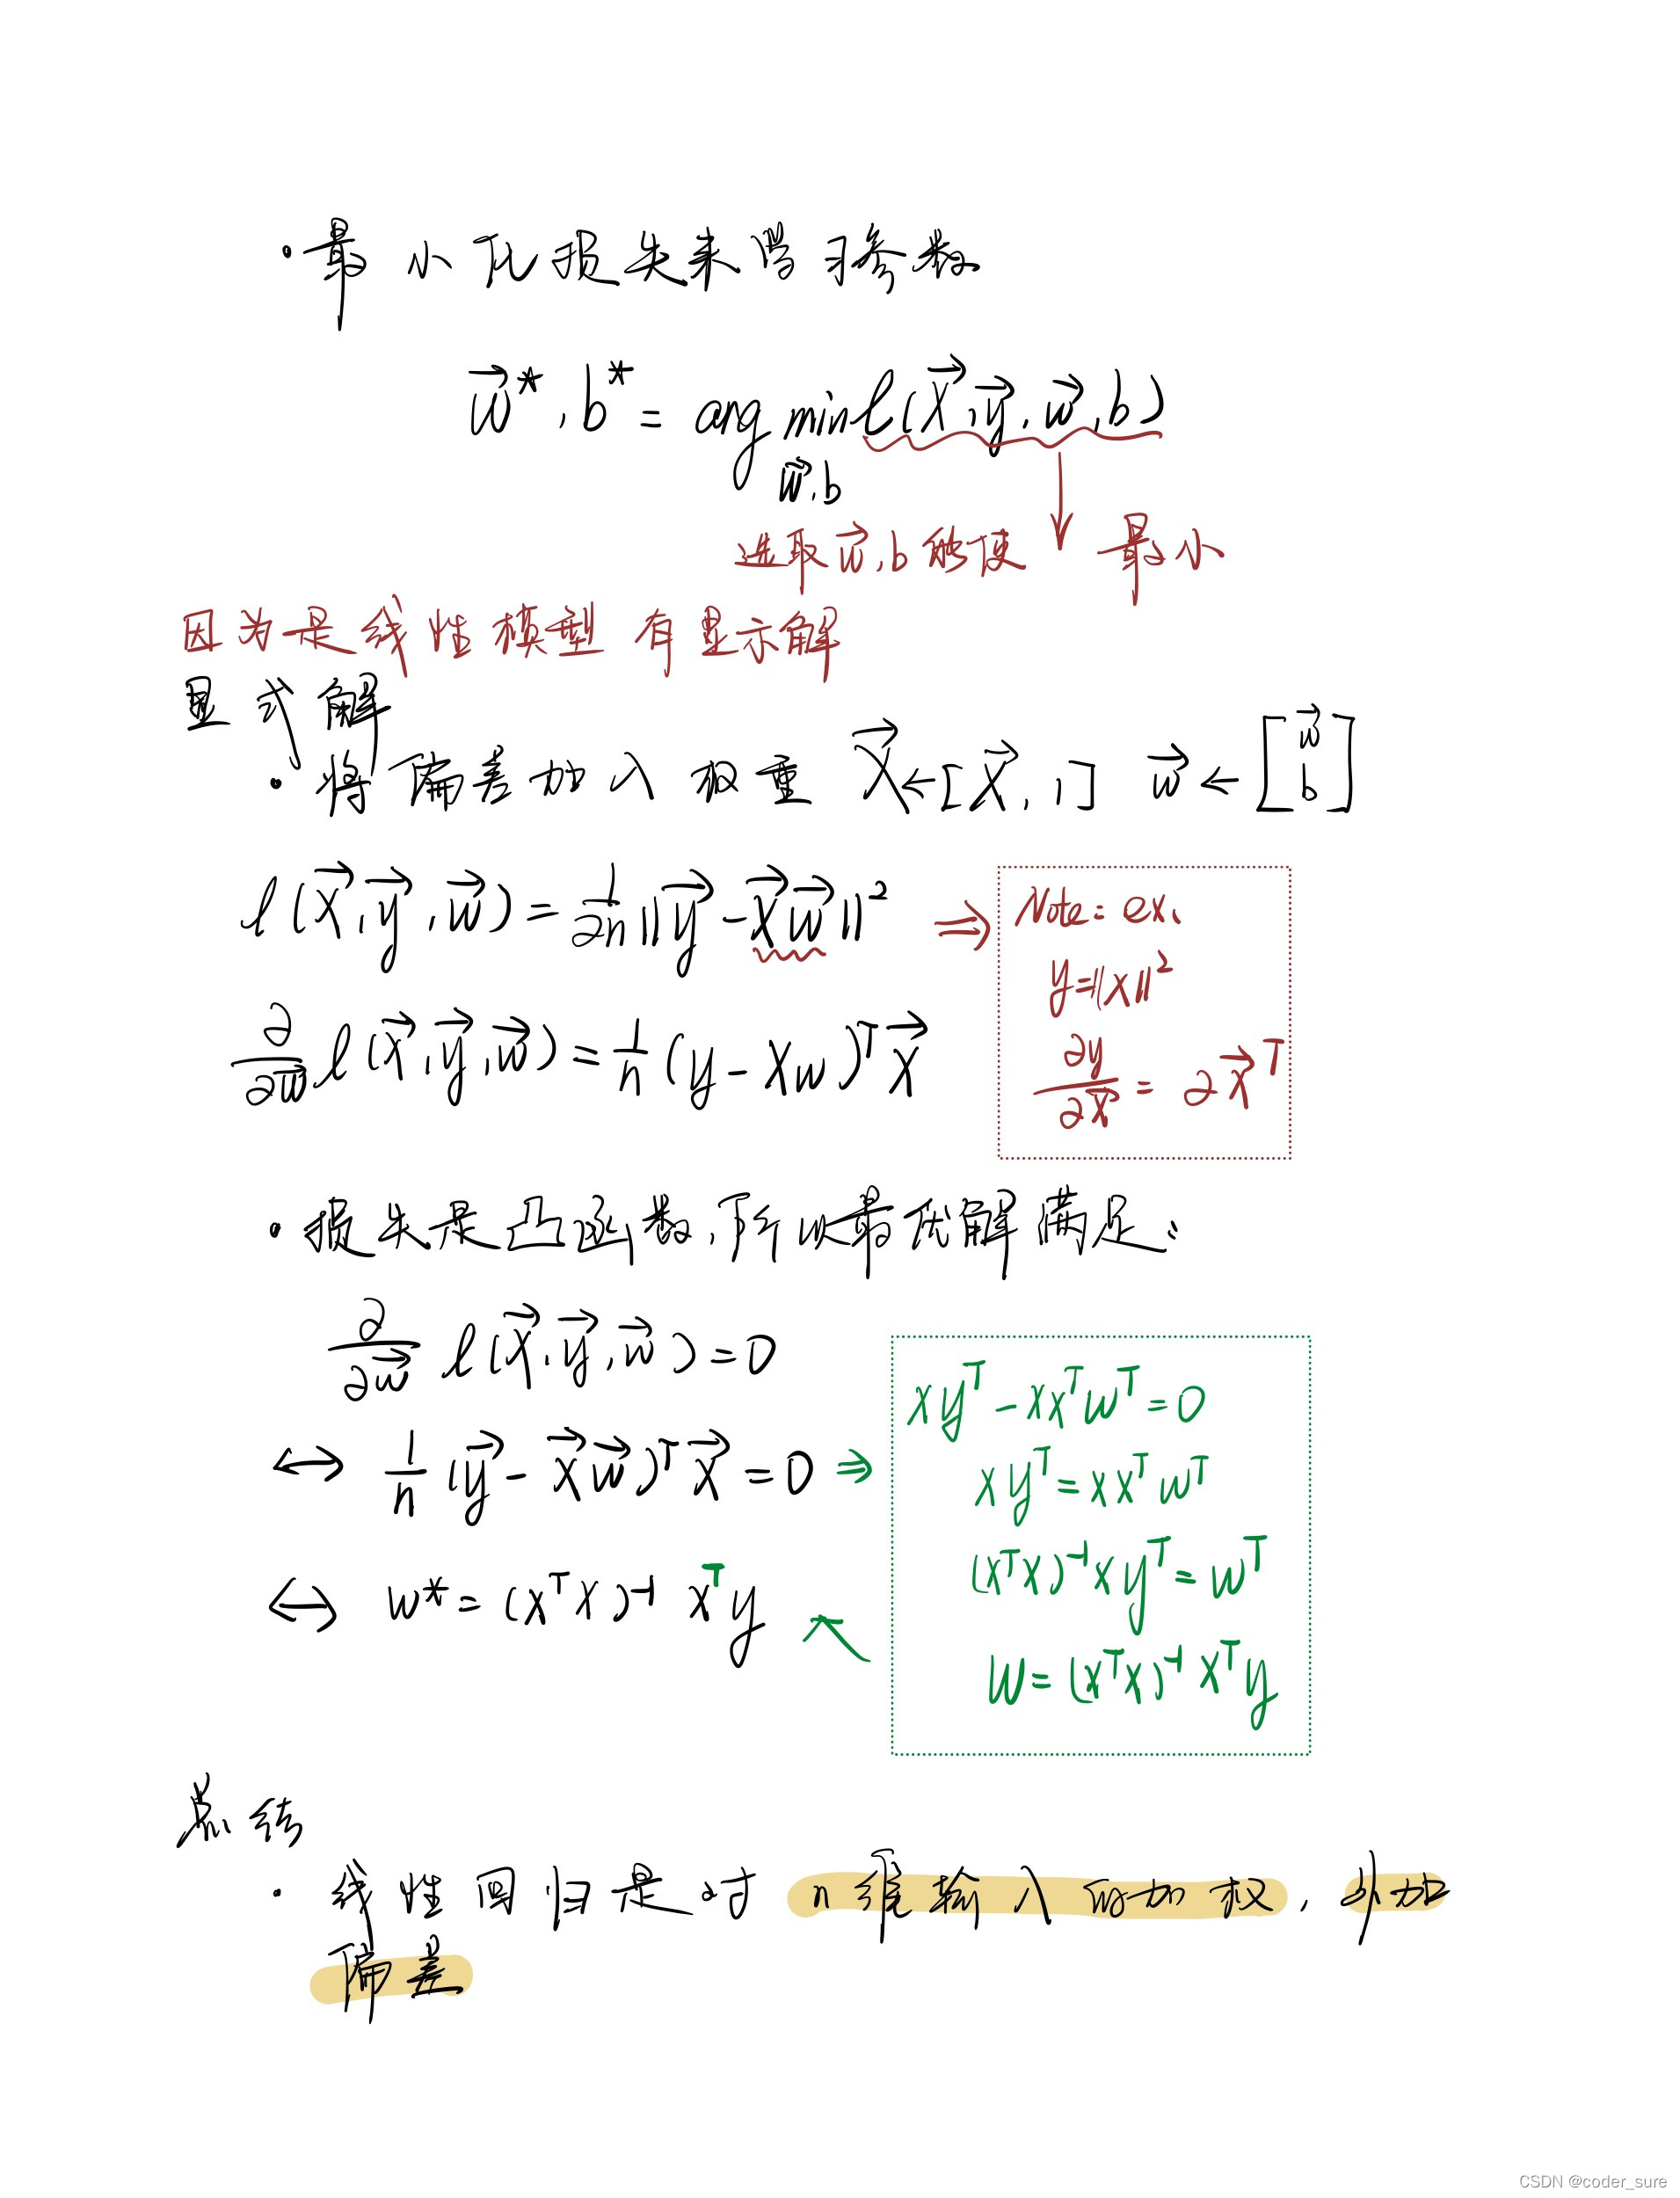 · 最小化损失来学习参数
w⃗*, b* = arg min ℓ(X⃗, y⃗, w⃗, b)
w⃗, b
选取 w⃗, b 能使 ↓ 最小
因为是线性模型 有显示解
显式解
· 将偏差加入权重 X⃗ ← [X⃗, 1] w⃗ ← [w⃗ b]
ℓ(X⃗, y⃗, w⃗) = 1/2n ||y⃗ - X⃗w⃗||² ⇒
Note: ex.
y = ||x||²
∂y/∂x⃗ = 2x⃗ᵀ
∂/∂w⃗ ℓ(X⃗, y⃗, w⃗) = 1/n (y - Xw)ᵀ X⃗
· 损失是凸函数, 所以最优解满足:
∂/∂w⃗ ℓ(X⃗, y⃗, w⃗) = 0
↔ 1/n (y⃗ - X⃗w⃗)ᵀ X⃗ = 0 ⇒
↔ w* = (xᵀx)⁻¹ xᵀy
xyᵀ - xxᵀwᵀ = 0
xyᵀ = xxᵀwᵀ
(xᵀx)⁻¹xyᵀ = wᵀ
w = (xᵀx)⁻¹xᵀy
总结
· 线性回归是对 n维输入的加权, 外加
偏差
CSDN @coder_sure